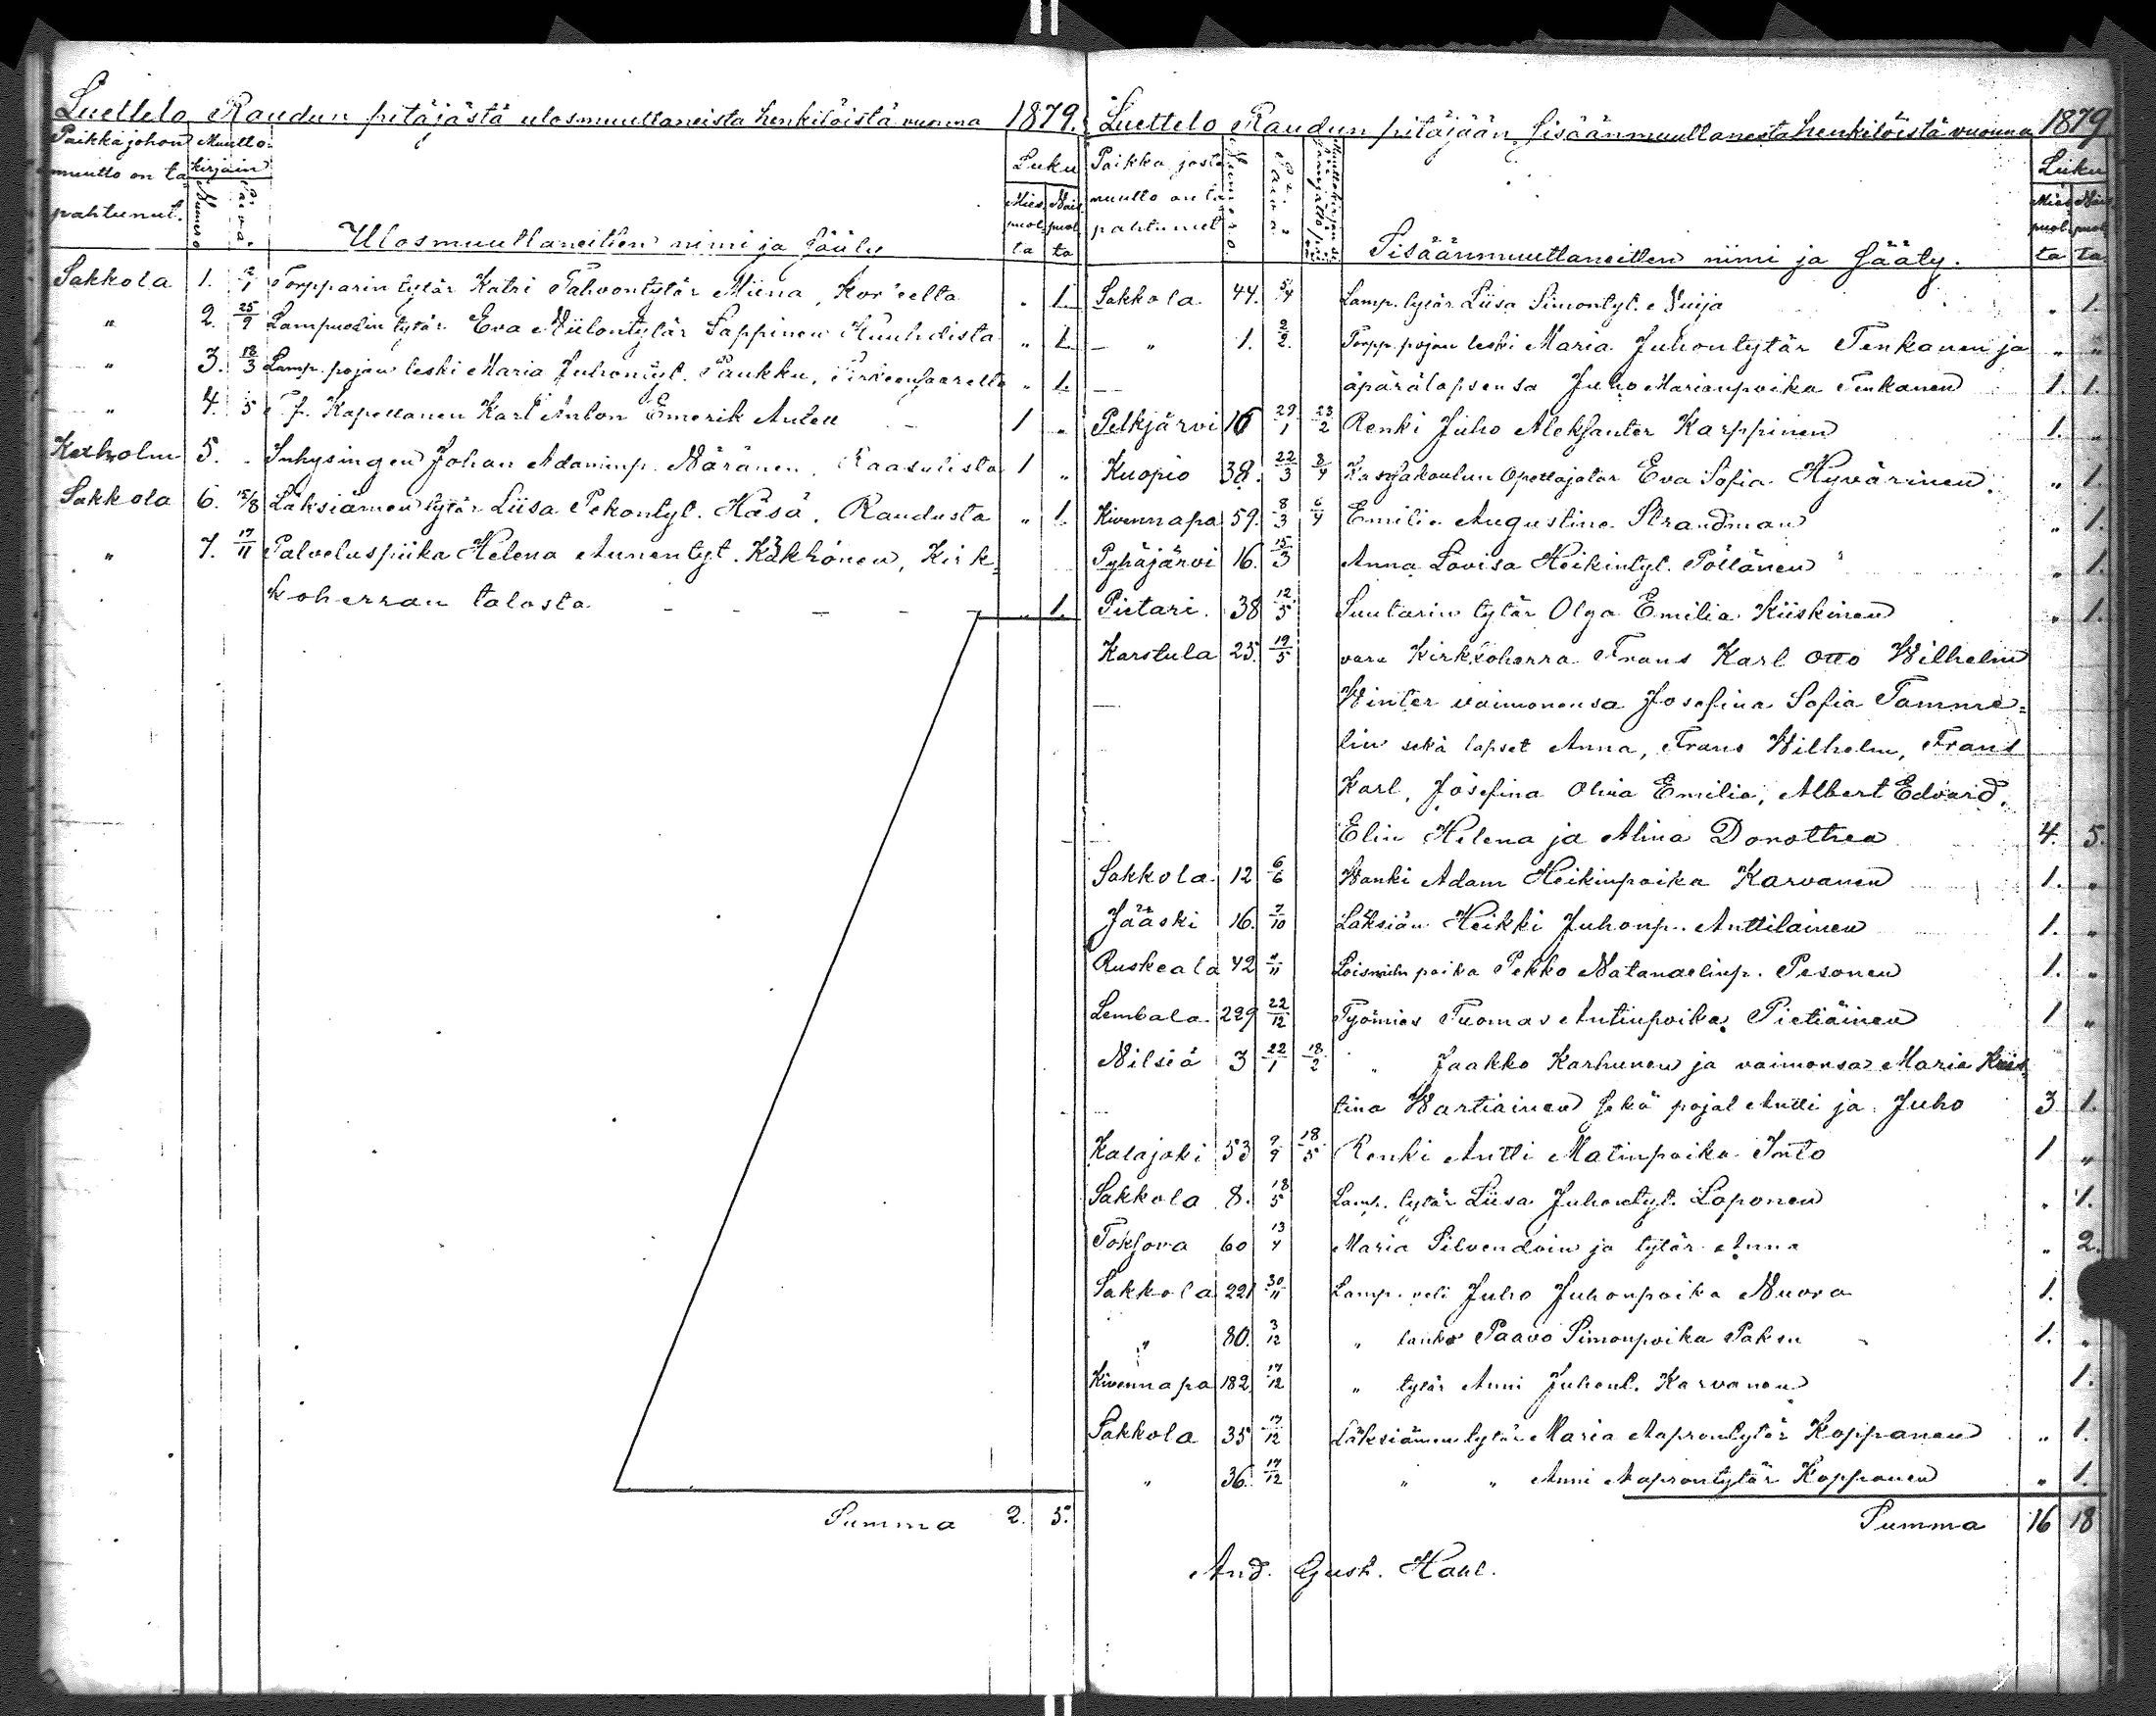 Luettelo Raudun pitäjästä ulosmuuttaneista henkilöistä vuonna 1879.
Paikka johon muutto on tapahtunut.
Muuttokirjain
Numero
Luku
Miespuolta
Naispuolta
Ulosmuuttaneitten nimi ja sääty
Sakkola 1. Torpparin tytär Katri Pahvontytär Miina, Kor'eelta „ 1.
„ 2. 25/9 Lampuodin tytär Eva Niilontytär Lappinen „ 1.
„ 3. 18/3 Lamp. pojan leski Maria Juhontyt. Paukku, „ 1.
„ 4. 5 Kapellanen Karl Anton Emerik 1 „
Kexholm 5. Inhysingen Johan Adaminp. Näränen, Raasulista 1 „
Sakkola 6. 15/8 Läksiämen tytär Liisa Pekontyt. Häsä, Raudusta „ 1.
„ 7. 17/11 Palveluspiika Helena Käkhönen, Kirk=
koherran talosta „ 1.
Summa 2. 5.
Luettelo Raudun pitäjään sisäänmuuttanesta henkilöistä vuonna 1879
Paikka josta muutto on tapahtunut
Numero
Luku
Miespuolta
Naispuolta
Sisäänmuuttaneitten nimi ja sääty.
Sakkola 44. 5/4 Lamp. tytär Liisa Simontyt. Nuija „ 1.
„ 1. 2/2. Torpp. pojan leski Maria Juhontytär Tenkanen ja „ „
äpärälapsensa Juho Marianpoika Tenkanen 1. 1.
Pelkjärvi 16 29/1 23/2 Renki Juho Aleksanter Karppinen 1. „
Kuopio 38. 22/3 8/4 Kansakoulun Opettajatar Eva Sofia Hyvärinen. „ 1.
Kivennapa 59. 8/3 6/4 Emilia Augustina Strandman „ 1.
Pyhäjärvi 16. 15/3 Anna Lovisa Heikintyt. Pöllänen „ 1.
Pietari. 38 12/5 Suutarin tytär Olga Emilia Kiiskinen „ 1.
Karstula 25. 19/5 vara Kirkkoherra Frans Karl Otto Wilhelm
Winter vaimonensa Josefina Sofia Tamme=
lin sekä lapset Anna, Frans Wilhelm, Frans
Karl, Josefina Olivia Emilia, Albert Edvard,
Elin Helena ja Alina Dorothea 4. 5.
Sakkola 12 6/6 Wanki Adam Heikinpoika Karvanen 1. „
Jääski 16. 7/10 Läksiän Heikki Juhonp. Anttilainen 1. „
Ruskeala 42 Loismiehen poika Pekko Natanaelinp. Pesonen 1. „
Lembala 229 22/12 Työmies Tuomas Antinpoika Pietiäinen 1 „
Nilsiä 3 22/1 18/2 „ Jaakko Karhunen ja vaimonsa Maria Kris=
tina Wartiainen sekä pojat Antti ja Juho 3 1.
Kalajoki 53 9/4 18/5 Renki Antti Matinpoika Into 1 „
Sakkola 8. 18/5 Lamp. tytär Liisa Juhontyt. Loponen „ 1.
Toksova 60 13/4 Maria Pilvendoin ja tytär Anna „ 2.
Sakkola 221 30/11 Lamp. veli Juho Juhonpoika Nuora 1.
„ 80. 3/12 „ lanko Paavo Simonpoika Paksu 1. „
Kivennapa 182 17/12 „ tytär Anni Juhont. Karvanen 1.
Sakkola 35 17/12 Läksiämen tytär Maria Aaprontytär Koppanen „ 1.
„ 36. 17/12 „ „ Anni Aaprontytär Koppanen „ 1.
Summa 16 18
And. Gust. Hahl.